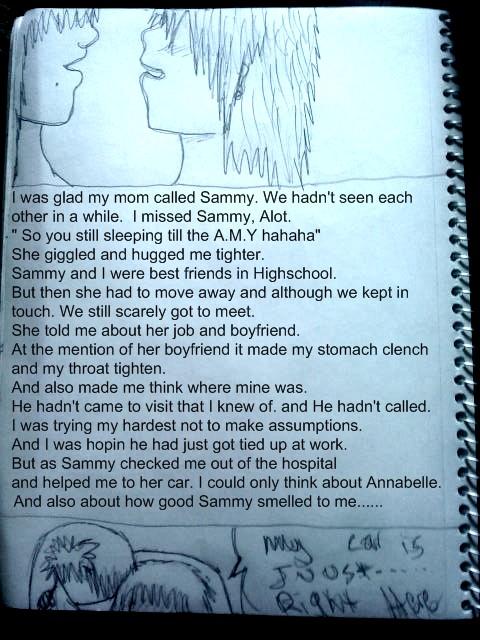 I was glad my mom called Sammy. We hadn't seen each
other in a while.  I missed Sammy, Alot.
" So you still sleeping till the A.M.Y hahaha"
She giggled and hugged me tighter.
Sammy and I were best friends in Highschool.
But then she had to move away and although we kept in
touch. We still scarely got to meet.
She told me about her job and boyfriend.
At the mention of her boyfriend it made my stomach clench
and my throat tighten.
And also made me think where mine was.
He hadn't came to visit that I knew of. and He hadn't called.
I was trying my hardest not to make assumptions.
And I was hopin he had just got tied up at work.
But as Sammy checked me out of the hospital
and helped me to her car. I could only think about Annabelle.
And also about how good Sammy smelled to me......
my car is
Juust......
Right Here